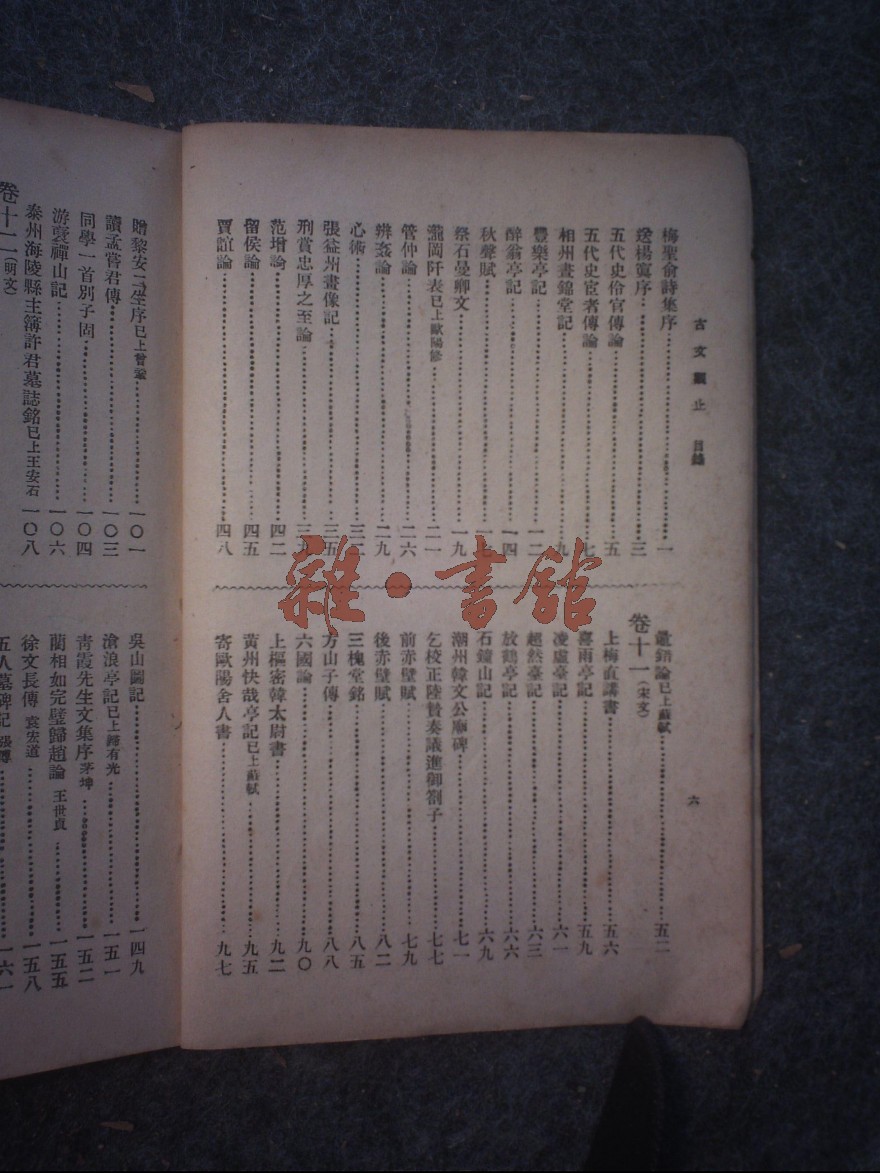 古文觀止 目錄
六
梅聖俞詩集序 一
送楊寘序 三
五代史伶官傳論 五
五代史宦者傳論 七
相州晝錦堂記 九
豐樂亭記 一二
醉翁亭記 一四
秋聲賦 一七
祭石曼卿文 一九
瀧岡阡表已上歐陽修 二一
管仲論 二六
辨姦論 二九
心術 三二
張益州畫像記 三五
刑賞忠厚之至論 三九
范增論 四二
留侯論 四五
賈誼論 四八
鼂錯論已上蘇軾 五二
卷十一(宋文)
上梅直講書 五六
喜雨亭記 五九
凌虛臺記 六一
超然臺記 六三
放鶴亭記 六六
石鐘山記 六九
潮州韓文公廟碑 七一
乞校正陸贄奏議進御劄子 七七
前赤壁賦 七九
後赤壁賦 八二
三槐堂銘 八五
方山子傳 八八
六國論 九〇
上樞密韓太尉書 九二
黃州快哉亭記已上蘇軾 九五
寄歐陽舍人書 九七
贈黎安二生序已上曾鞏 一〇一
讀孟嘗君傳 一〇三
同學一首別子固 一〇四
游褒禪山記 一〇六
泰州海陵縣主簿許君墓誌銘已上王安石 一〇八
卷十二(明文)
吳山圖記
滄浪亭記已上歸有光 一四九
青霞先生文集序 茅坤 一五一
藺相如完璧歸趙論 王世貞 一五五
徐文長傳 袁宏道 一五八
五人墓碑記 張溥 一六一
雜·書館